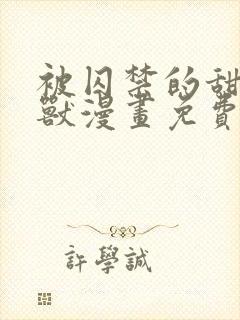 被囚禁的甜
獸漫畫免費
許學誠